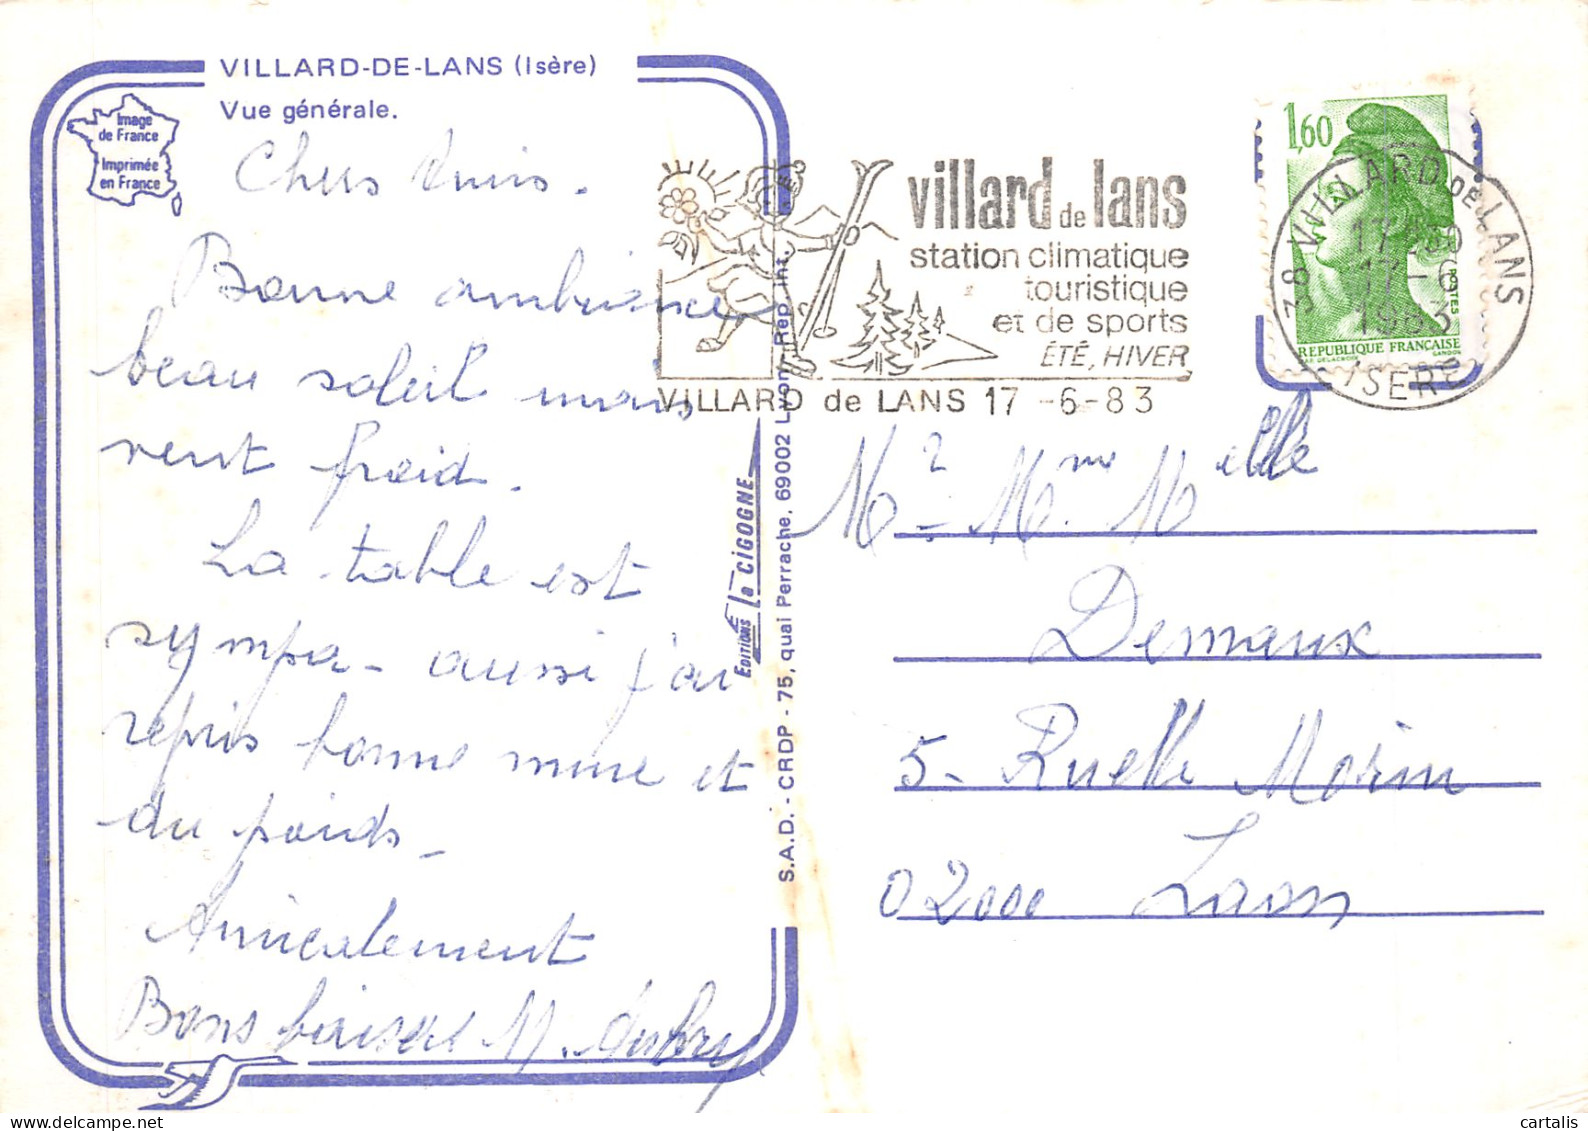 VILLARD-DE-LANS (Isère)
Vue générale.
Image
de France
Imprimée
en France
Chers Amis.
Bonne ambiance
beau soleil mais
vent froid.
La table est
sympa - aussi j'ai
repris bonne mine et
du poids -
Amicalement
Bons baisers M. Aubry
EDITIONS la CIGOGNE
S.A.D. - CRDP - 75, quai Perrache, 69002 Lyon - Rep. Int.
villard de lans
station climatique
touristique
et de sports
ÉTÉ, HIVER
VILLARD de LANS 17 -6-83
1,60
POSTES
REPUBLIQUE FRANÇAISE
GANDON
38 VILLARD DE LANS
17-6
1983
ISERE
Mr - Mme. Melle
Demaux
5 - Ruelle Morin
02000 Laon
cartalis